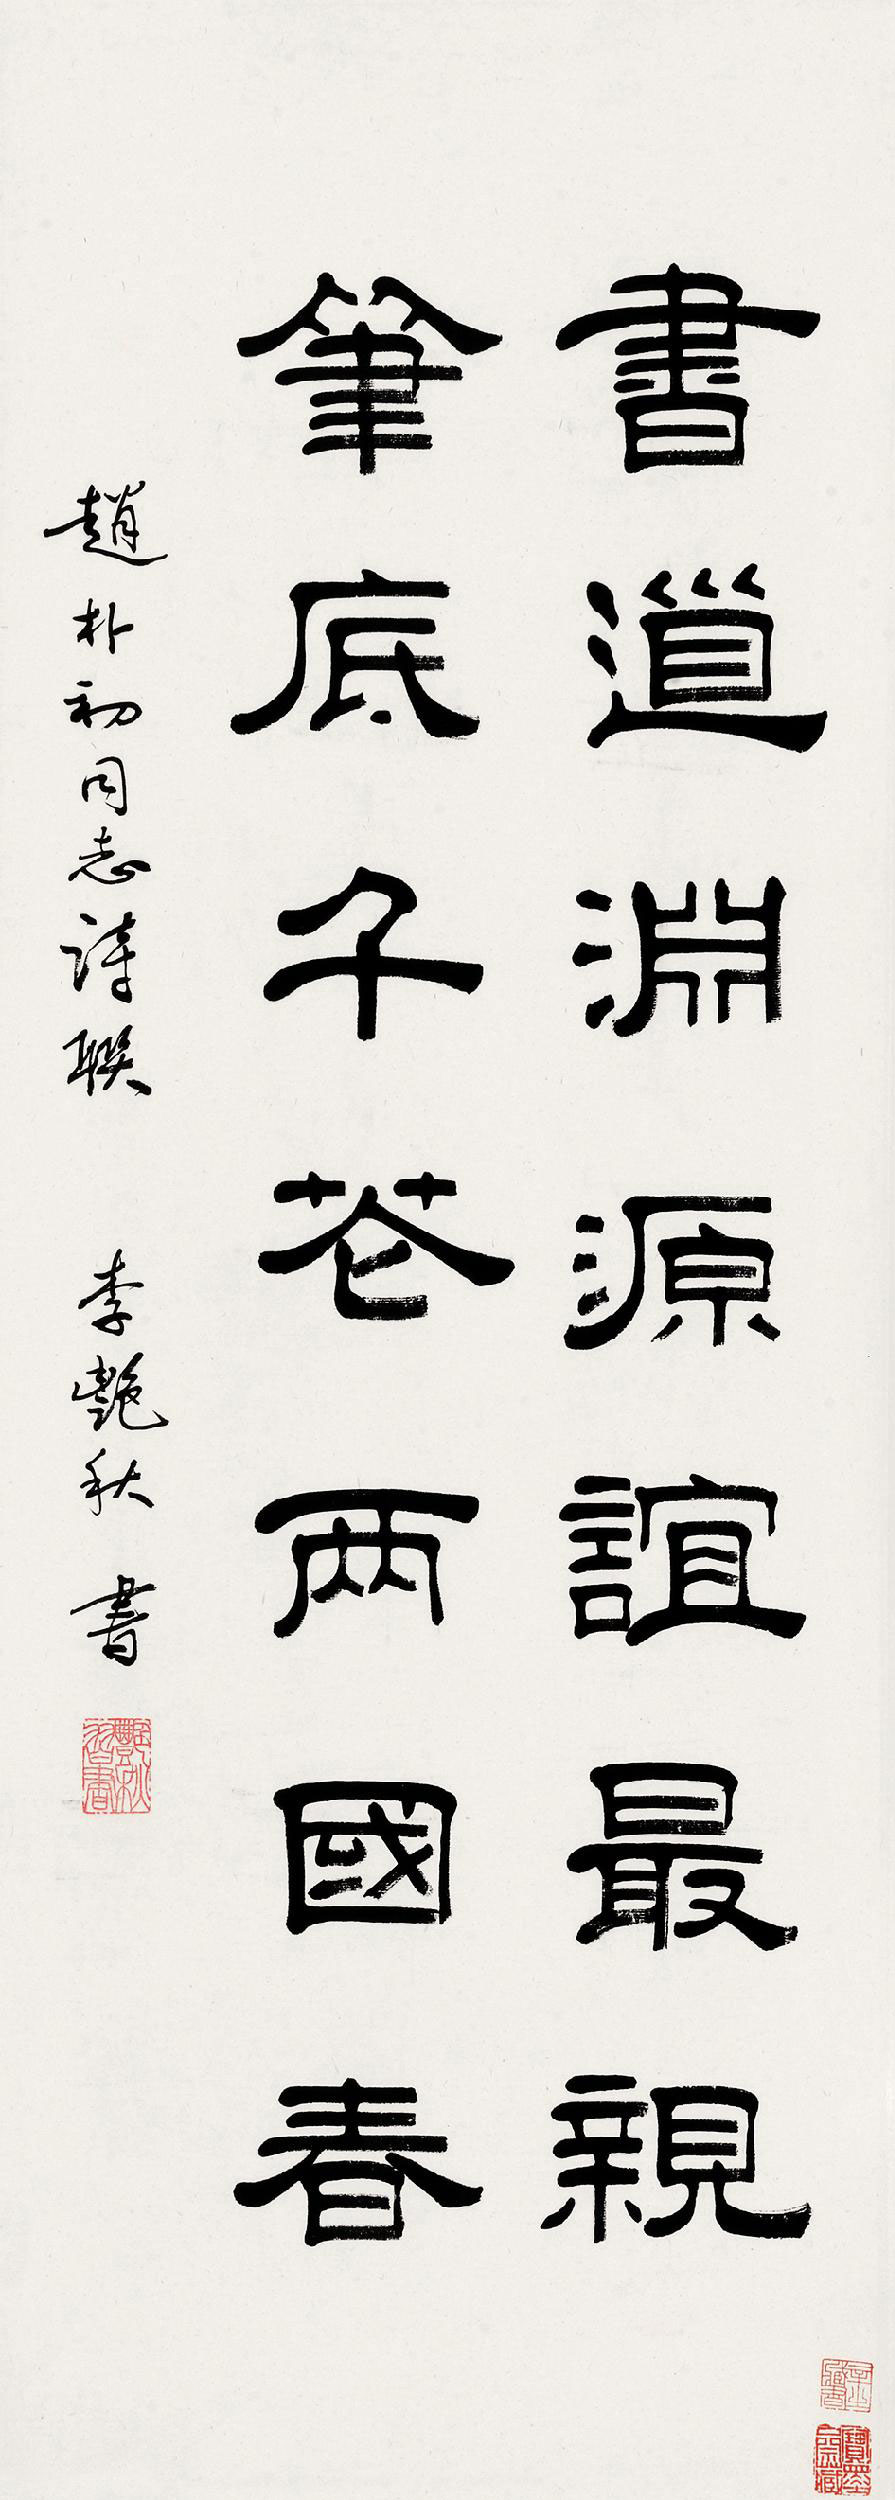 書道淵源誼最親
筆底千花兩國春
趙朴初同志詩聯 李艷秋 書
艷秋習書